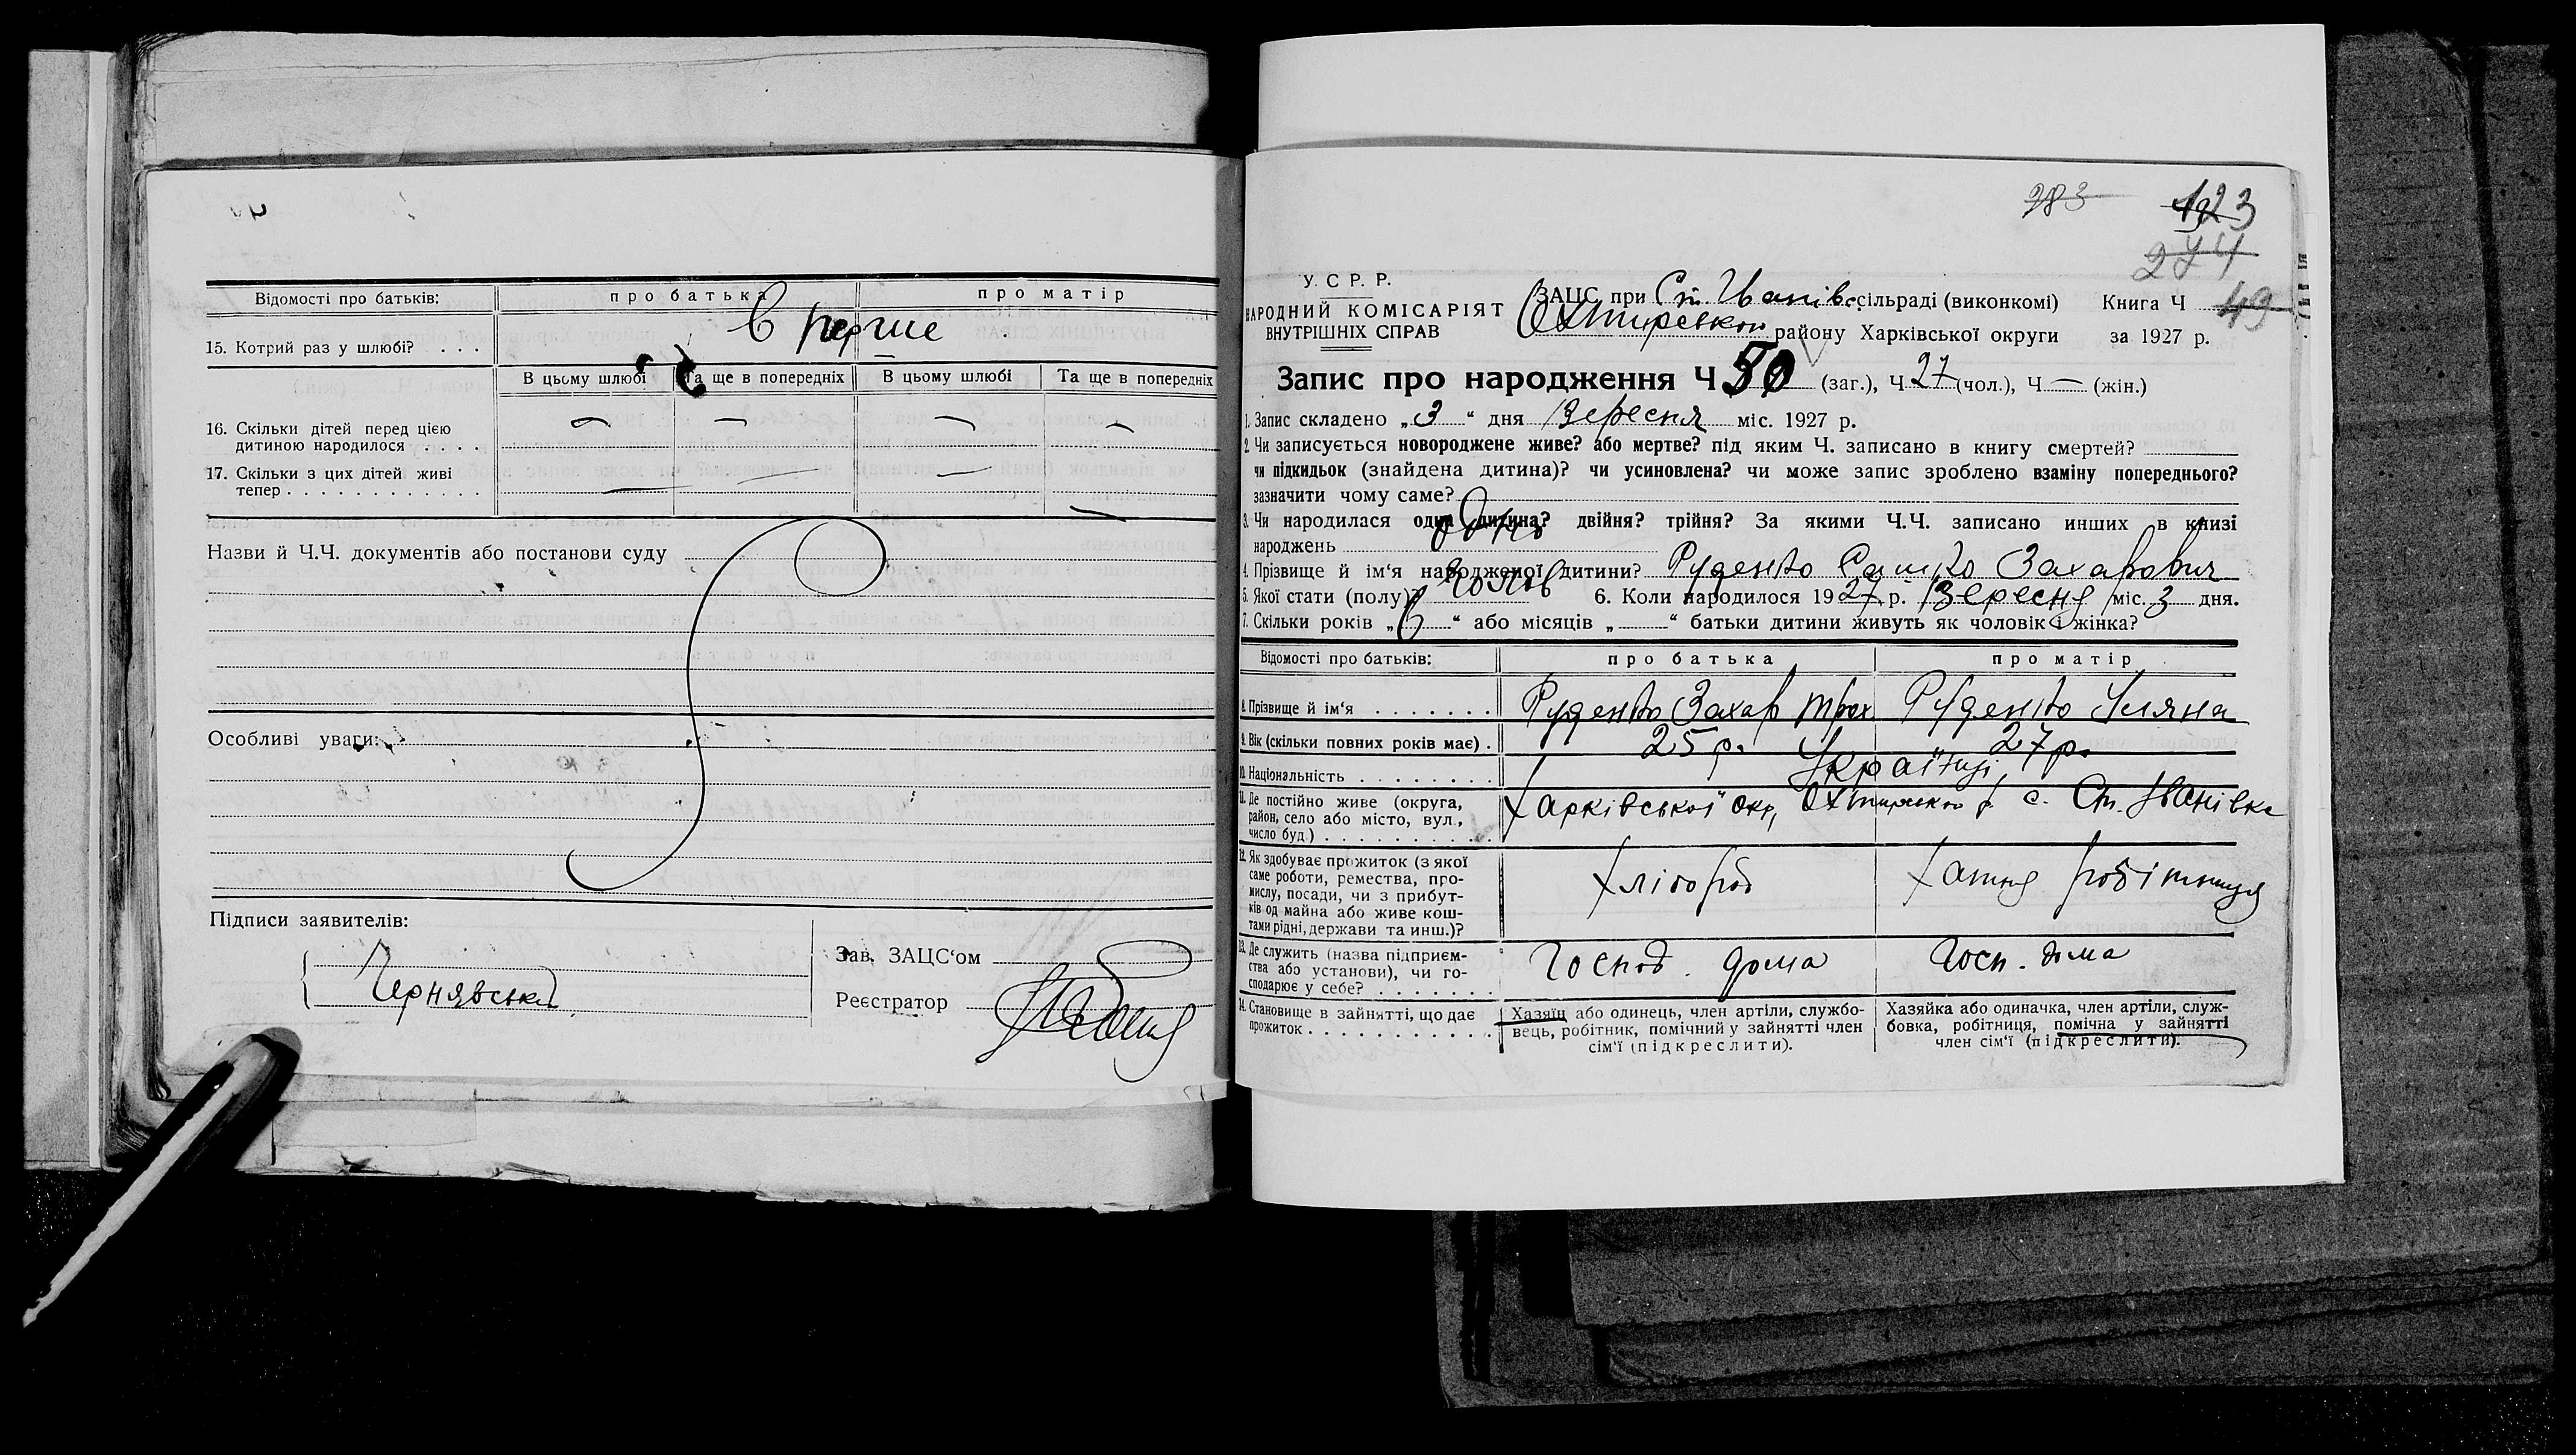 Відомості про батьків: про батька про матір
15. Котрий раз у шлюбі? . . . в перше
В цьому шлюбі Та ще в попередніх В цьому шлюбі Та ще в попередніх
16. Скільки дітей перед цією — — — —
дитиною народилося . . . .
17. Скільки з цих дітей живі — — — —
тепер . . . . . . . . . . . .
Назви й Ч.Ч. документів або постанови суду
Особливі уваги:
Підписи заявителів:
Зав. ЗАЦС‘ом
Чернявський
Реєстратор
283 123
274
У. С. Р. Р.
НАРОДНИЙ КОМІСАРІЯТ
ВНУТРІШНІХ СПРАВ
ЗАЦС при Ст. Іванів. сільраді (виконкомі) Книга Ч 49
Охтирського району Харківської округи за 1927 р.
Запис про народження Ч 50 (заг.), Ч 27 (чол.), Ч — (жін.)
1. Запис складено „3“ дня Вересня міс. 1927 р.
2. Чи записується новороджене живе? або мертве? під яким Ч. записано в книгу смертей?
чи підкидьок (знайдена дитина)? чи усиновлена? чи може запис зроблено взаміну попереднього?
зазначити чому саме?
3. Чи народилася одна дитина? двійня? трійня? За якими Ч.Ч. записано инших в книзі
народжень одно
4. Прізвище й ім‘я народженої дитини? Руденко Сашко Захарович
5. Якої стати (полу)? чолов 6. Коли народилося 1927 р. Вересня міс. 3 дня.
7. Скільки років „6“ або місяців „ “ батьки дитини живуть як чоловік і жінка?
Відомості про батьків: про батька про матір
8. Прізвище й ім‘я . . . . . . . Руденко Захар Трох Руденко Уляна
9. Вік (скільки повних років має) . 25 р. 27 р.
10. Національність . . . . . . . . Українці
11. Де постійно живе (округа,
район, село або місто, вул.,
число буд.) . . . . . . . . . . Харківської окр, Охтирського р. с. Ст. Іванівка
12. Як здобуває прожиток (з якої
саме роботи, ремества, про-
мислу, посади, чи з прибут-
ків од майна або живе кош-
тами рідні, держави та инш.)? Хлібороб Хатня робітниця
13. Де служить (назва підприєм-
ства або установи), чи го-
сподарює у себе? . . . . . . . Господ. дома Госп. дома
14. Становище в зайнятті, що дає
прожиток . . . . . . . . . . .
Хазяїн або одинець, член артіли, службо-
вець, робітник, помічний у зайнятті член
сім‘ї (підкреслити).
Хазяйка або одиначка, член артіли, служ-
бовка, робітниця, помічна у зайнятті
член сім‘ї (підкреслити).